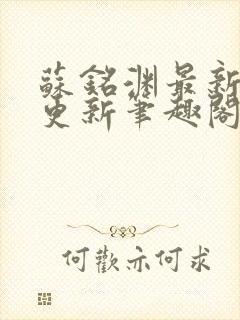 蘇銘淵最新
更新筆趣閣
何歡亦何求